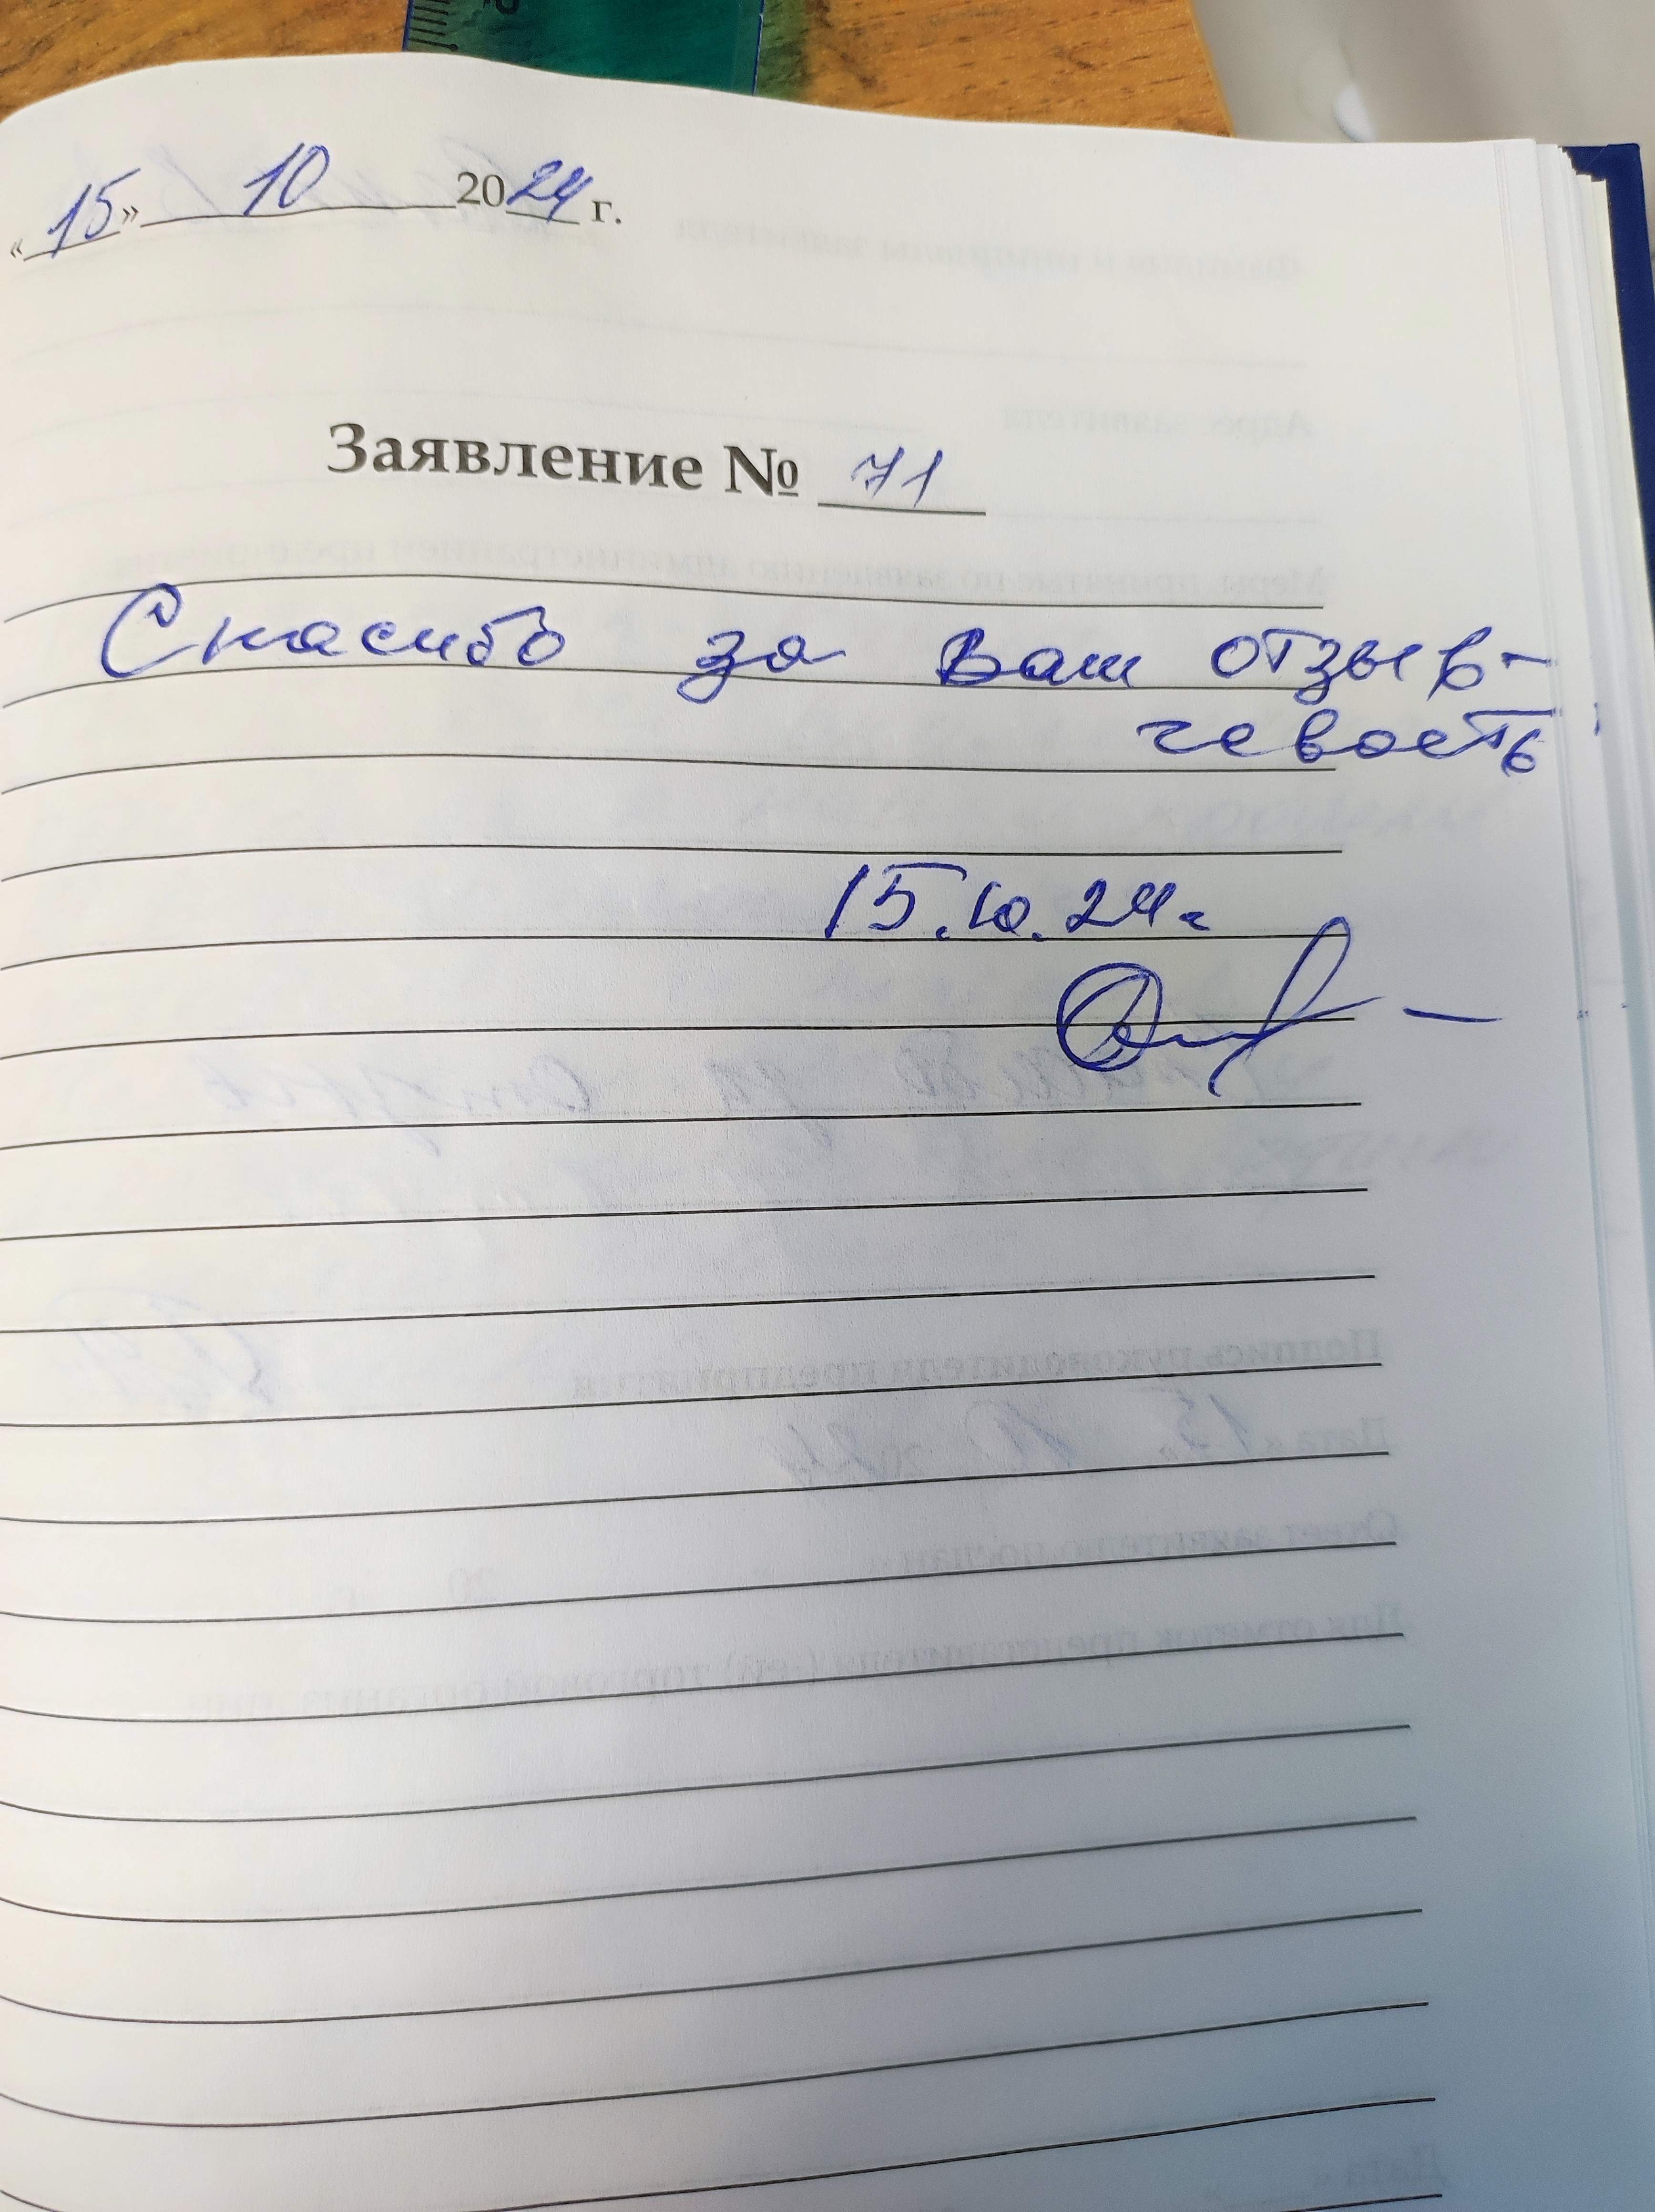 «15» 10 2024 г.
Заявление № 71
Спасибо за Ваш отзыв-
чевость
15.10.24г